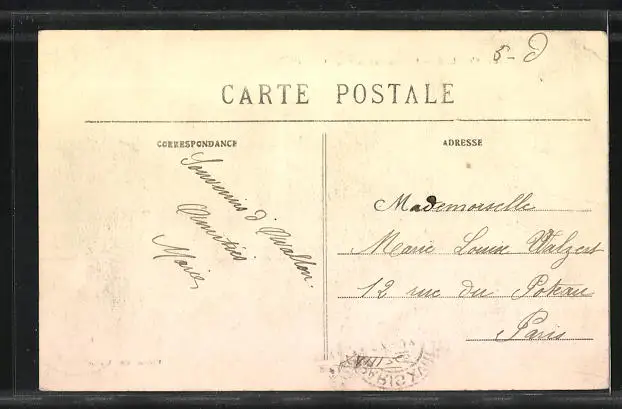 5-
CARTE POSTALE
CORRESPONDANCE
Souvenirs d'Avallon.
Amitiés
Marie
ADRESSE
Mademoiselle
Marie Louise
12 rue du Poteau
Paris